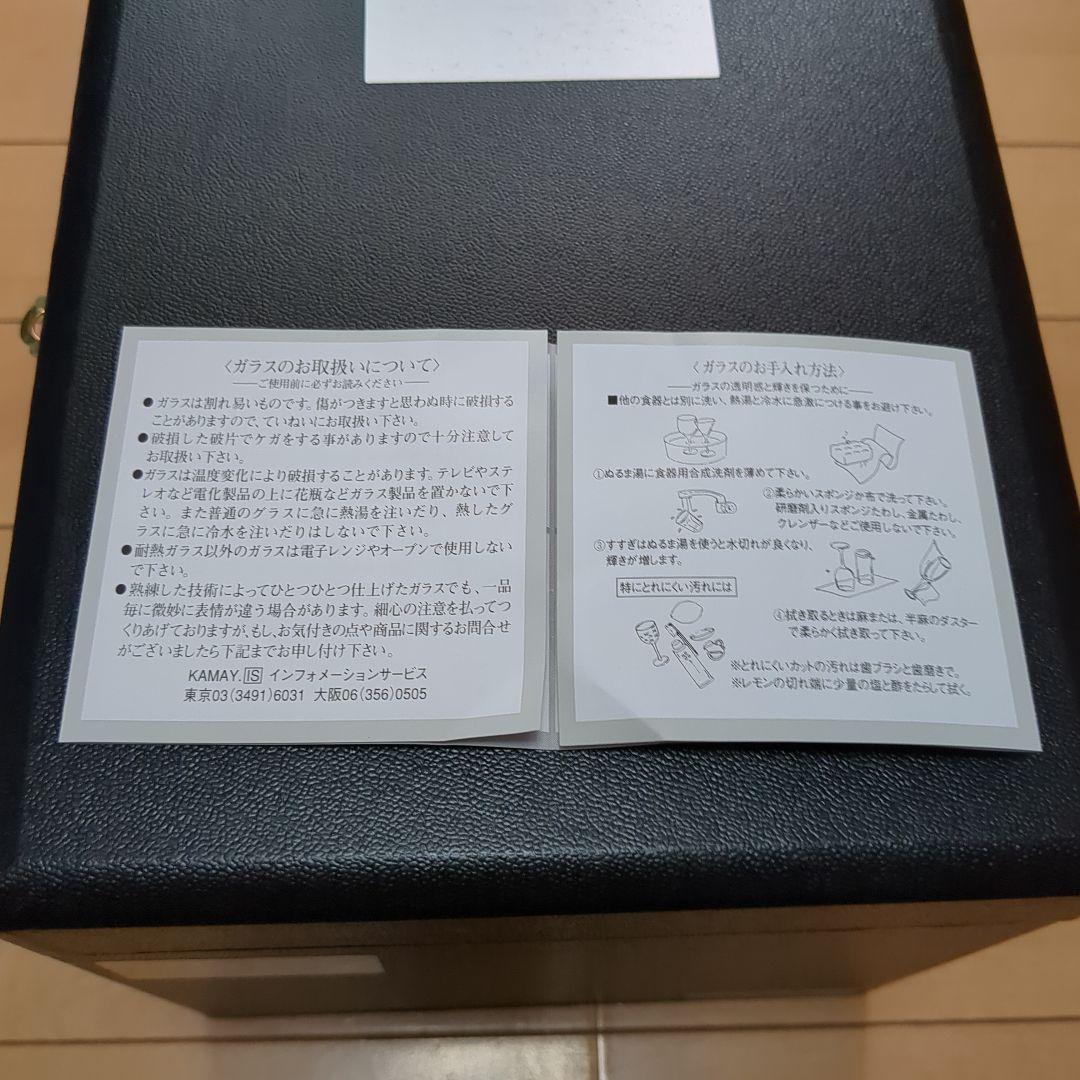 〈ガラスのお取扱いについて〉
ご使用前に必ずお読みください
●ガラスは割れ易いものです。傷がつきますと思わぬ時に破損する
ことがありますので、ていねいにお取扱い下さい。
●破損した破片でケガをする事がありますので十分注意して
お取扱い下さい。
●ガラスは温度変化により破損することがあります。テレビやステ
レオなど電化製品の上に花瓶などガラス製品を置かないで下
さい。また普通のグラスに急に熱湯を注いだり、熱したグ
ラスに急に冷水を注いだりはしないで下さい。
●耐熱ガラス以外のガラスは電子レンジやオーブンで使用しない
で下さい。
●熟練した技術によってひとつひとつ仕上げたガラスでも、一品
毎に微妙に表情が違う場合があります。細心の注意を払ってつ
くりあげておりますが、もし、お気付きの点や商品に関するお問合せ
がございましたら下記までお申し付け下さい。
KAMAY.IS インフォメーションサービス
東京03(3491)6031 大阪06(356)0505
〈ガラスのお手入れ方法〉
ガラスの透明感と輝きを保つために
■他の食器とは別に洗い、熱湯と冷水に急激につける事をお避け下さい。
①ぬるま湯に食器用合成洗剤を薄めて下さい。
②柔らかいスポンジか布で洗って下さい。
研磨剤入りスポンジたわし、金属たわし、
クレンザーなどご使用しないで下さい。
③すすぎはぬるま湯を使うと水切れが良くなり、
輝きが増します。
特にとれにくい汚れには
④拭き取るときは麻または、半麻のダスター
で柔らかく拭き取って下さい。
※とれにくいカットの汚れは歯ブラシと歯磨きで。
※レモンの切れ端に少量の塩と酢をたらして拭く。